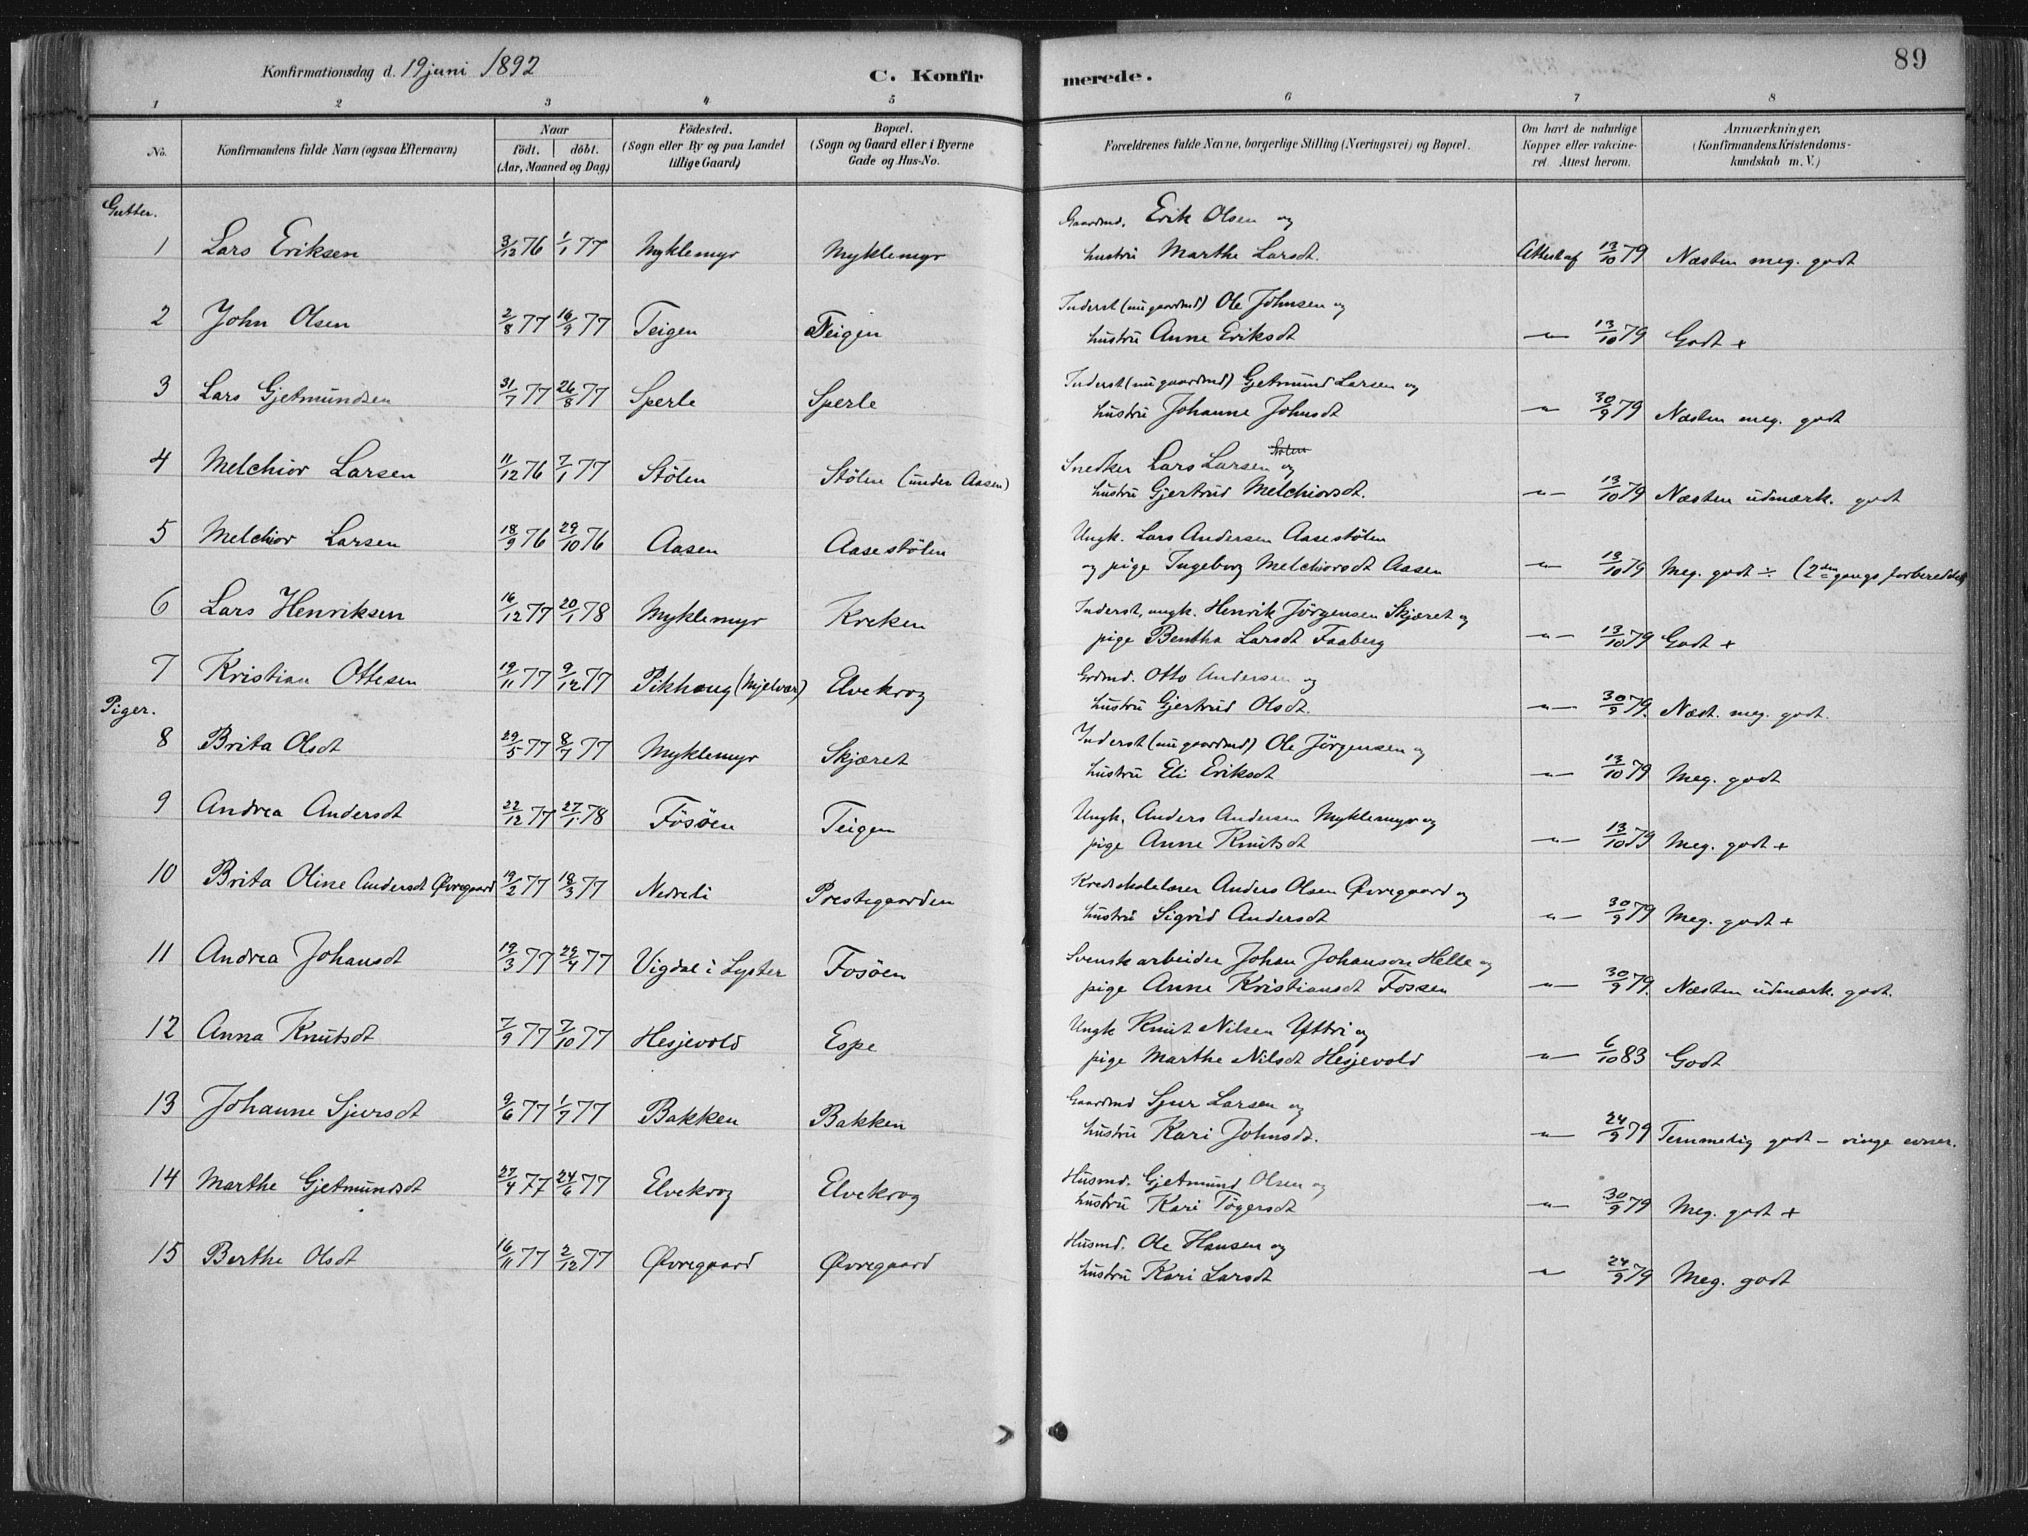 Konfirmationsdag d. 19 juni 1892
C. Konfirmerede.
89
1 2 3 4 5 6 7 8
No.
Konfirmandens fulde Navn (ogsaa Efternavn)
Naar
födt. döbt.
(Aar, Maaned og Dag)
Födested.
(Sogn eller By og paa Landet
tillige Gaard)
Bopæl.
(Sogn og Gaard eller i Byerne
Gade og Hus-No.
Forældrenes fulde Navne, borgerlige Stilling (Næringsvei) og Bopæl.
Om havt de naturlige
Kopper eller vakcine-
ret. Attest herom.
Anmærkninger.
(Konfirmandens Kristendoms-
kundskab m. V.)
Gutter.
1 Lars Eriksen 3/12 76 1/1 77 Myklemyr Myklemyr
Gaardmd. Erik Olsen og
hustru Marthe Larsdt. Attest af 13/10 79 Næsten meg. godt
2 John Olsen 2/8 77 16/9 77 Teigen Teigen
Inderst (nu gaardmd) Ole Johnsen og
hustru Anne Eriksdt " 13/10 79 Godt +
3 Lars Gjetmundsen 31/7 77 26/8 77 Sperle Sperle
Inderst (nu gaardmd) Gjetmund Larsen og
hustru Johanne Johnsdt " 30/9 79 Næsten meg. godt
4 Melchior Larsen 11/12 76 7/1 77 Stølen Stølen (under Aasen)
Snedker Lars Larsen og
hustru Gjertrud Melchiorsdt. " 13/10 79 Næsten udmærk. godt
5 Melchior Larsen 18/9 76 29/10 76 Aasen Aasestølen
Ungk. Lars Andersen Aasestølen
og pige Ingeborg Melchiorsdt Aasen " 13/10 79 Meg. godt ÷ (2den gangs forberedelse)
6 Lars Henriksen 16/12 77 20/1 78 Myklemyr Kreken
Inderst, ungk. Henrik Jørgensen Skjæret og
pige Bentha Larsdt Faaberg " 13/10 79 Godt +
7 Kristian Ottesen 19/11 77 9/12 77 Pikhaug (Mjelvær) Elvekrog
Grdmd. Otto Andersen og
hustru Gjertrud Olsdt. " 30/9 79. Næst. meg. godt.
Piger.
8 Brita Olsdt 29/5 77 8/7 77 Myklemyr Skjæret
Inderst (nu gaardmd) Ole Jørgensen og
hustru Eli Eriksdt " 13/10 79 Meg. godt
9 Andrea Andersdt 22/12 77 27/1 78 Fosøen Teigen
Ungk. Anders Andersen Myklemyr og
pige Anne Knutsdt " 13/10 79 Meg. godt +
10 Brita Oline Andersdt Øvregaard 19/2 77 18/3 77 Nedreli Prestegaarden
Kredsskolelærer Anders Olsen Øvregaard og
hustru Sigrid Andersdt " 30/9 79 Meg. godt +
11 Andrea Johansdt 19/3 77 29/4 77 Vigdal i Lyster Fosøen
Svensk arbeider Johan Johanson Helle og
pige Anne Kristiansdt Fossen " 30/9 79. Næsten udmærk. godt.
12 Anna Knutsdt 7/9 77 7/10 77 Hesjevold Espe
Ungk Knut Nilsen Yttri og
pige Marthe Nilsdt Hesjevold " 6/10 83 Godt
13 Johanne Sjursdt 9/6 77 1/7 77 Bakken Bakken
Gaardmd Sjur Larsen og
hustru Kari Johnsdt. " 24/9 79 Temmelig godt – ringe evner.
14 Marthe Gjetmundsdt 27/4 77 24/6 77 Elvekrog Elvekrog
Husmd. Gjetmund Olsen og
hustru Kari Tøgersdt " 30/9 79 Meg. godt +
15 Berthe Olsdt 16/11 77 2/12 77 Øvregaard Øvregaard
Husmd. Ole Hansen og
hustru Kari Larsdt " 24/9 79 Meg. godt